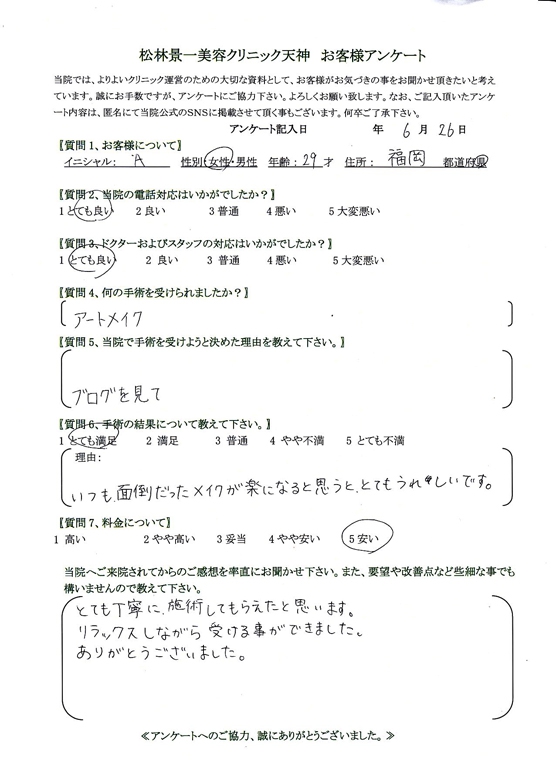 松林景一美容クリニック天神　お客様アンケート
当院では、よりよいクリニック運営のための大切な資料として、お客様がお気づきの事をお聞かせ頂きたいと考え
ています。誠にお手数ですが、アンケートにご協力下さい。よろしくお願い致します。なお、ご記入頂いたアンケ
ート内容は、匿名にて当院公式のSNSに掲載させて頂く事もございます。何卒ご了承下さい。
アンケート記入日　　　年　6　月　26　日
〖質問1、お客様について〗
イニシャル：　A　　性別・女性・男性　年齢：29才　住所：　福岡　　都道府県
〖質問2、当院の電話対応はいかがでしたか？〗
1 とても良い　　2 良い　　3 普通　　4 悪い　　5 大変悪い
〖質問3、ドクターおよびスタッフの対応はいかがでしたか？〗
1 とても良い　　2 良い　　3 普通　　4 悪い　　5 大変悪い
〖質問4、何の手術を受けられましたか？〗
アートメイク
〖質問5、当院で手術を受けようと決めた理由を教えて下さい。〗
ブログを見て
〖質問6、手術の結果について教えて下さい。〗
1 とても満足　　2 満足　　3 普通　　4 やや不満　　5 とても不満
理由：
いつも、面倒だったメイクが楽になると思うと、とてもうれしいです。
〖質問7、料金について〗
1 高い　　2 やや高い　　3 妥当　　4 やや安い　　5 安い
当院へご来院されてからのご感想を率直にお聞かせ下さい。また、要望や改善点など些細な事でも
構いませんので教えて下さい。
とても丁寧に、施術してもらえたと思います。
リラックスしながら受ける事ができました。
ありがとうございました。
≪アンケートへのご協力、誠にありがとうございました。≫